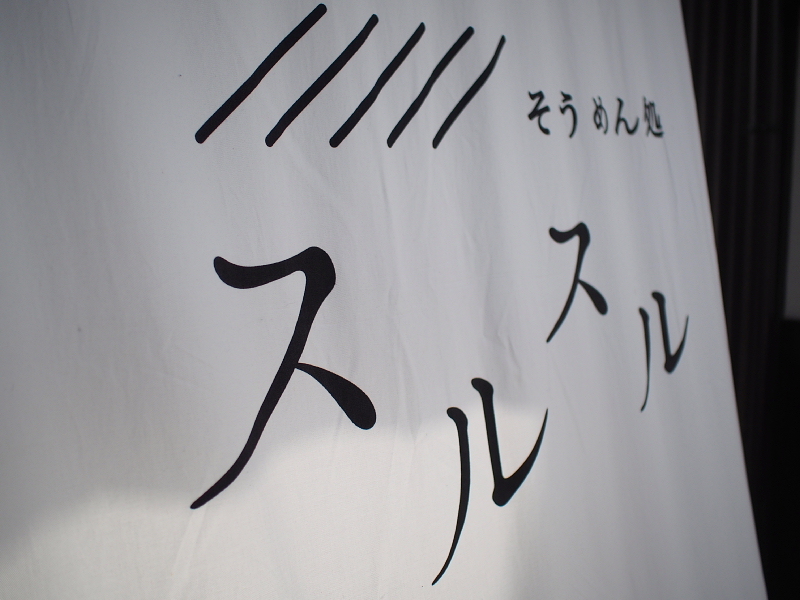 そうめん処
スルスル